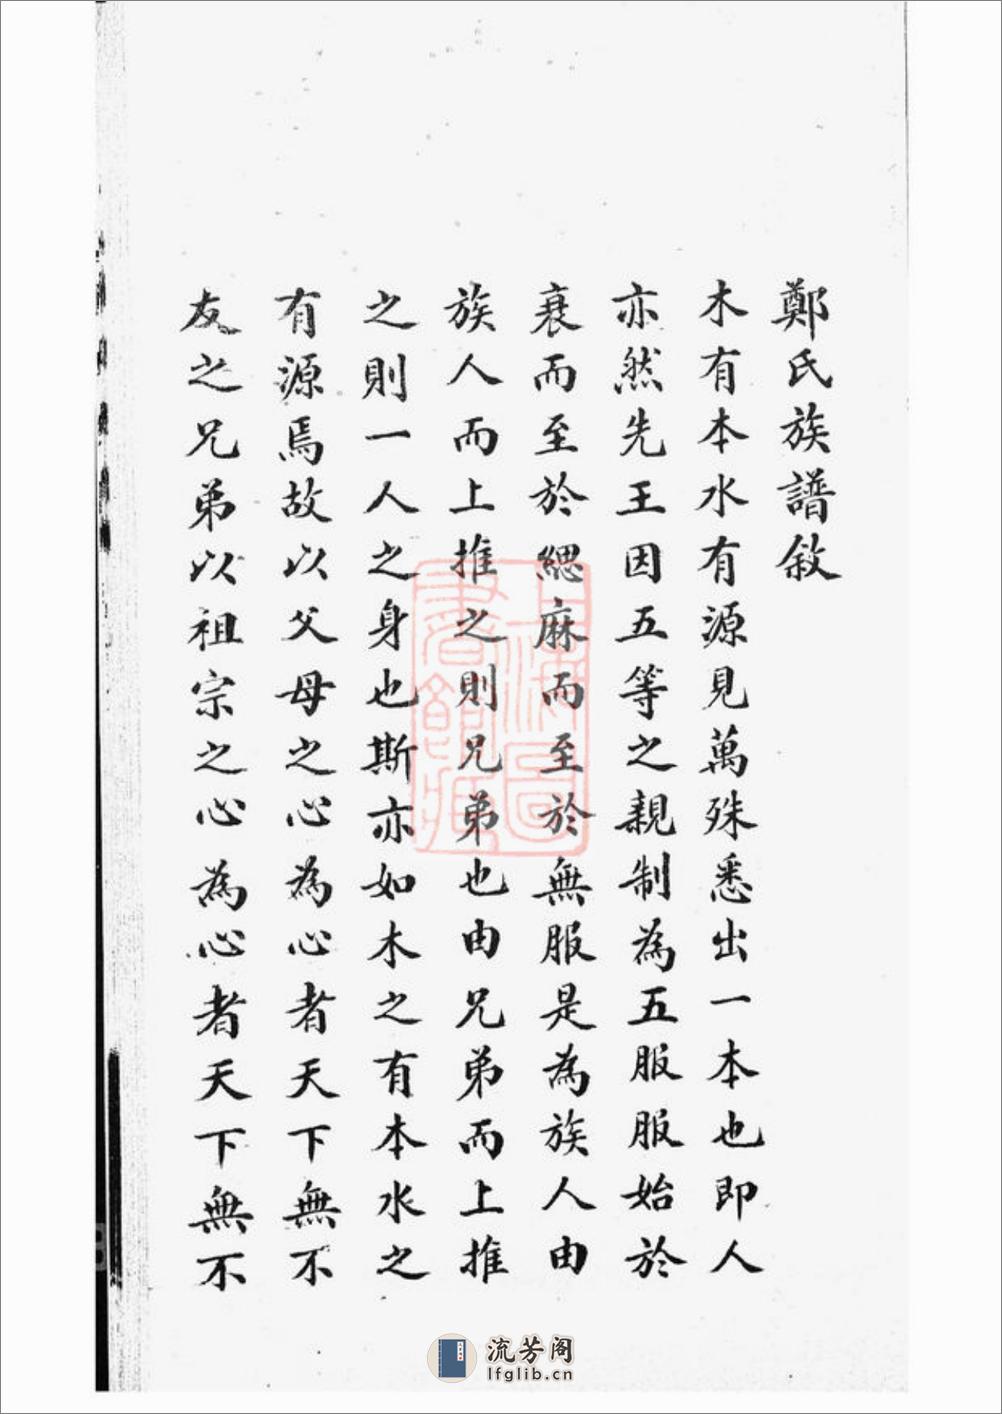 鄭氏族譜敘
木有本水有源見萬殊悉出一本也即人
亦然先王因五等之親制為五服服始於
衰而至於緦麻而至於無服是為族人由
族人而上推之則兄弟也由兄弟而上推
之則一人之身也斯亦如木之有本水之
有源焉故以父母之心為心者天下無不
友之兄弟以祖宗之心為心者天下無不
上海圖書館藏
流芳阁
lfglib.cn